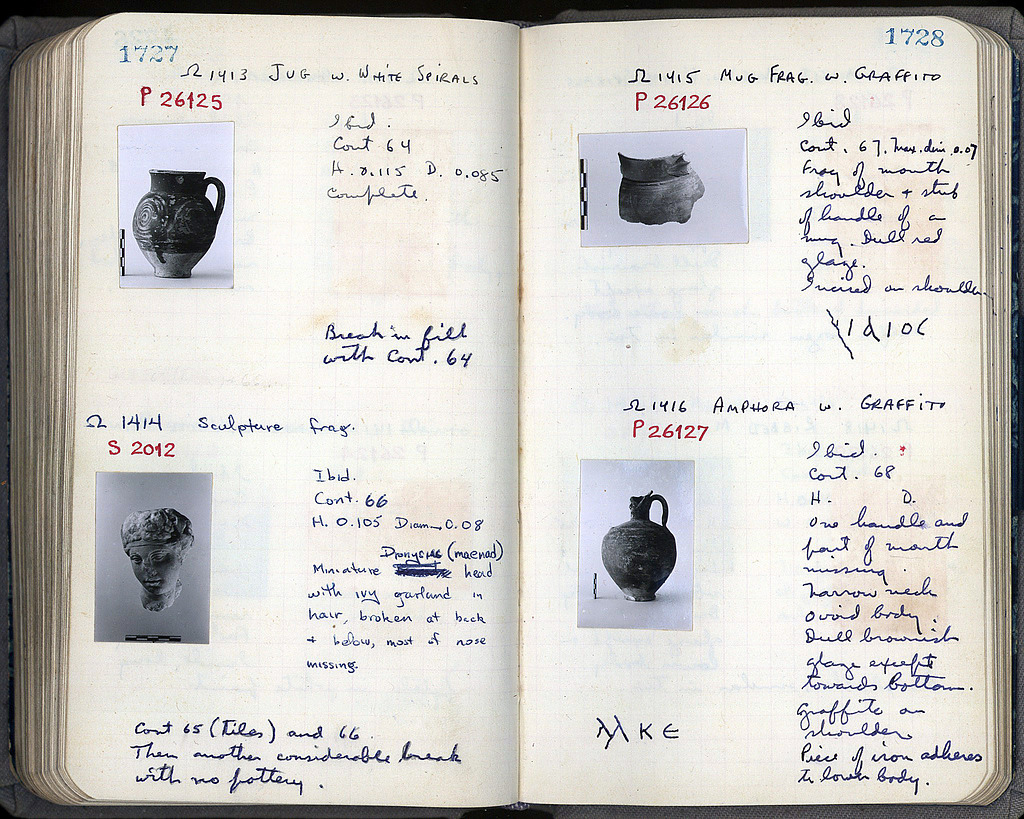 1727
Ω 1413 JUG W. WHITE SPIRALS
P 26125
Ibid.
Cont 64
H. 0.115 D. 0.085
Complete.
Break in fill
with Cont. 64
Ω 1414 Sculpture frag.
S 2012
Ibid.
Cont. 66
H. 0.105 Diam. 0.08
Dionysus (maenad)
Miniature head
with ivy garland in
hair, broken at back
+ below, most of nose
missing.
Cont 65 (tiles) and 66.
Then another considerable break
with no pottery.
1728
Ω 1415 MUG FRAG. W. GRAFFITO
P 26126
Ibid
Cont. 67. Max. dim. 0.07
Frag of mouth
shoulder + stub
of handle of a
mug. Dull red
glaze.
Incised on shoulder
Ω 1416 AMPHORA W. GRAFFITO
P 26127
Ibid.
Cont. 68
H. D.
One handle and
part of mouth
missing.
Narrow neck
ovoid body.
Dull brownish
glaze except
towards bottom.
Graffito on
shoulder
Piece of iron adheres
to lower body.
Κ Ε